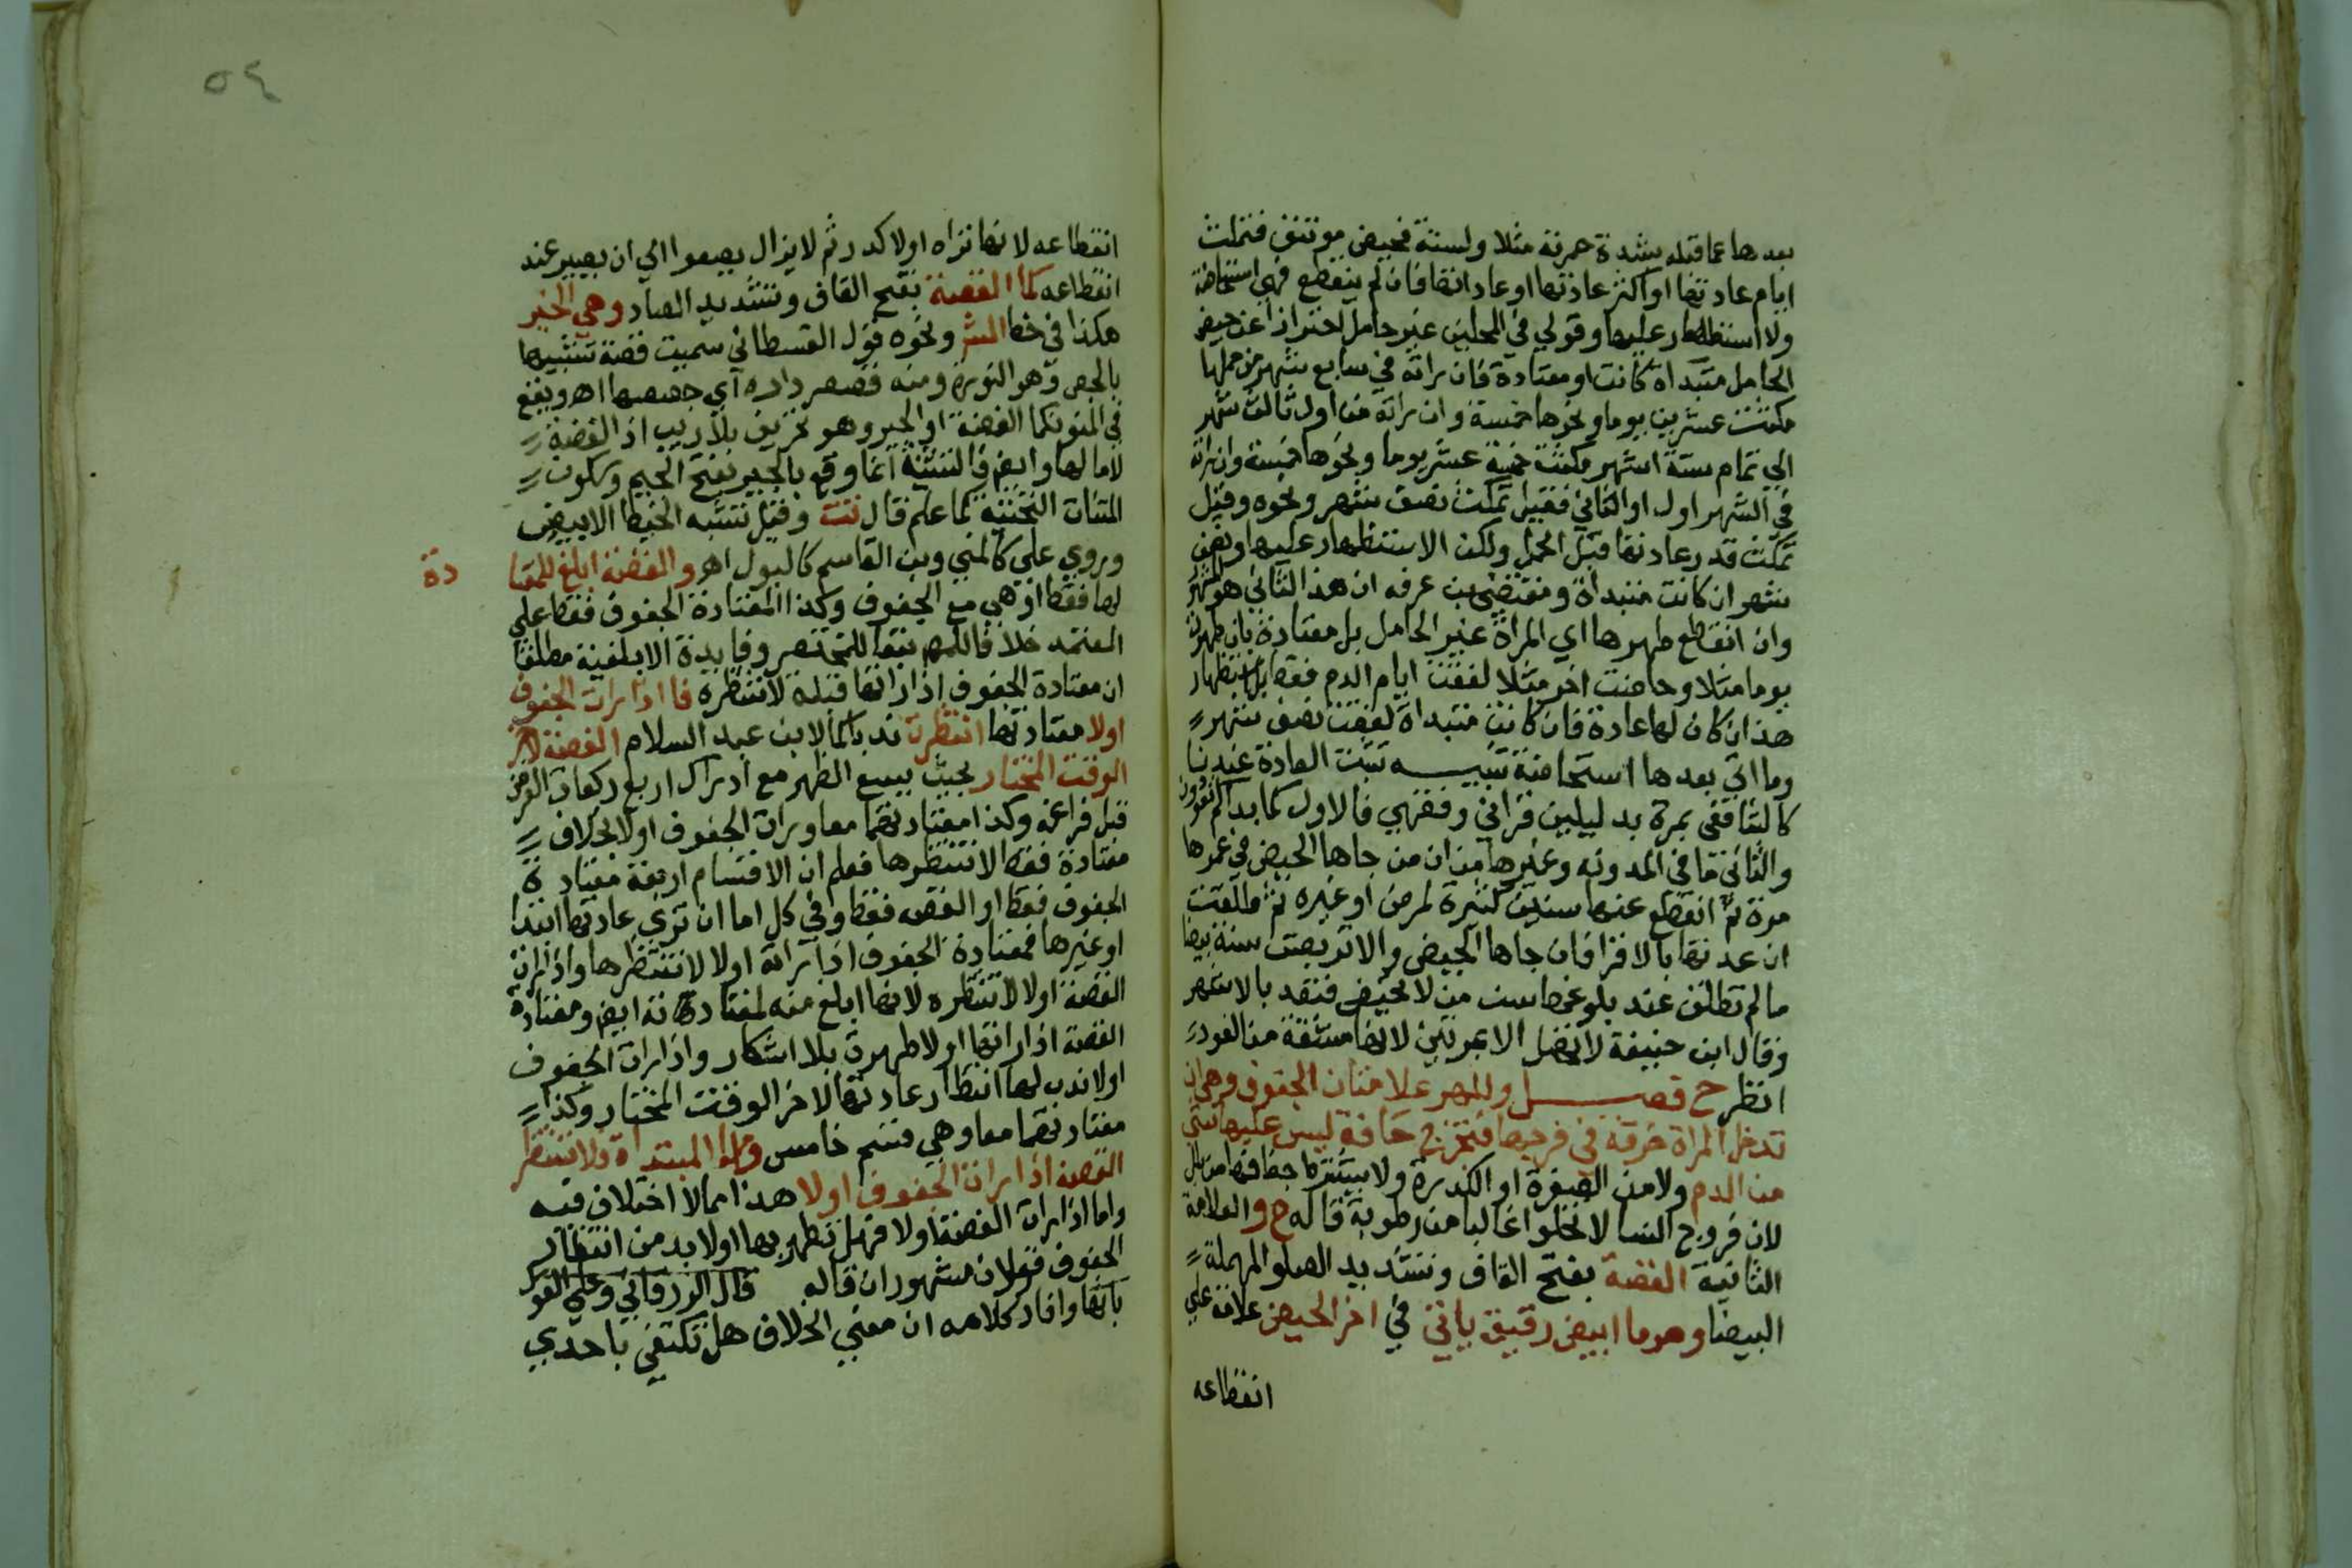 بعدها عما قبله بشدة حمرته مثلا ولسنة فحيض موتنف فتمكث
ايام عادتها او اكثر عادتها او عادانها فان لم ينقطع فهي استحاضة
ولا استظهار عليها وقولي في المحلين غير حامل احترازا عن حيض
الحامل مبتداه كانت او معتادة فان راته في سابع شهر من حملها
مكثت عشرين يوما ونحوها خمسة وان راته من اول ثالث شهر
الي تمام ستة اشهر مكثت خمسة عشر يوما ونحوها خمسة وان راته
في الشهر اول او الثاني فقيل تمكث نصف شهر ونحوه وقيل
تمكث قدر عادتها قبل الحمل ولكن الاستظهار عليها او نصف
شهر ان كانت مبتداة ومقتضي بن عرفه ان هذا الثاني هو المشهور
وان انقطع طهرها اي المراة غير الحامل بل معتادة بان طهرت
يوما مثلا وحاضت اخر مثلا لفقت ايام الدم فقط بلا استظهار
هذا ان كان لها عادة فان كانت مبتداة لفقت نصف شهر
وما اتي بعدها استحاضة تنبيه تثبت العادة عندنا
كالشافعي بمرة بدليلين قراني وفقهي فالاول كما بداكم تعودون
والثاني ما في المدونه وغيرها من ان من جاها الحيض في عمرها
مرة ثم انقطع عنها سنين كثيرة لمرض او غيره ثم طلقت
ان عدتها بالاقرا فان جاها الحيض والا تربصت سنة بيضا
ما لم تطلق عند بلوغها سن من لا تحيض فتعتد بالاشهر
وقال ابن حنيفة لا تحصل الا بمرتين لانها مشتقة من العود
انظر ح فصل وللطهر علامتان الجفوف وهي ان
تدخل المراة خرقة في فرجها فتخرج جافة ليس عليها شي
من الدم ولا من الصفرة او الكدرة ولا يشترط جفافها من بلل
لان فروج النسا لا تخلوا غالبا من رطوبة قاله ح والعلامة
الثانية القصة بفتح القاف وتشديد الصاد المهملة
البيضا وهو ما ابيض رقيق ياتي في اخر الحيض علامة علي
انقطاعه
٥٤
انقطاعه لانها تراه اولا كدر ثم لا يزال يصفوا الي ان يصير عند
انقطاعه كما القصة بفتح القاف وتشديد الصاد وهي الجير
هكذا في خط الش ونحوه قول القسطلاني سميت قصة تشبيها
بالجص وهو النورة ومنه قصص داره اي جصصها اه ويقع
في المنوي كما القصة او الجير وهو تحريف بلا ريب اذ القصة
لا ما لها وايض فالتشبيه انما وقع بالجير بفتح الجيم وسكون
المثناة التحتية كما علم قال تت وقيل تشبه الخيط الابيض
وروي علي كالمني وبن القاسم كالبول اه والقصة ابلغ للمعتا
دة
لها فقط او هي مع الجفوف وكذا المعتادة الجفوف فقط علي
المعتمد خلافا لهم تبعا للمختصر وفايدة الابلغية مطلقا
ان معتادة الجفوف اذا راتها قبله لا تنتظره فاذا رات الجفوف
اولا معتادتها انتظرت ندبا كما لابن عبد السلام القصة لاخر
الوقت المختار بحيث يسع الطهر مع ادراك اربع ركعات الفرض
قبل فراغه وكذا معتادتهما معا ورات الجفوف اولا بخلاف
معتادة فقط لا تنتظرها فعلم ان الاقسام اربعة معتادة
الجفوف فقط او القصه فقط وفي كل اما ان تري عادتها ابتدا
او غيرها فمعتادة الجفوف اذا راته اولا لا تنتظرها واذا رات
القصة اولا لا تنتظره لانها ابلغ منه لمعتادته ايض ومعتادة
القصة اذا راتها اولا طهرت بلا اشكال واذا رات الجفوف
اولا ندب لها انتظار عادتها لاخر الوقت المختار وكذا
معتادتهما معا وهي قسم خامس واما المبتداة فلا تنتظر
القصة اذا رات الجفوف اولا هذا مما لا اختلاف فيه
واما اذا رات القصة اولا فهل تطهر بها اولا بد من انتظار
الجفوف فقولان مشهوران قاله قال الزرقاني وعلي القول
بانها وافاد كلامه ان معني الخلاف هل تكتفي باحدي